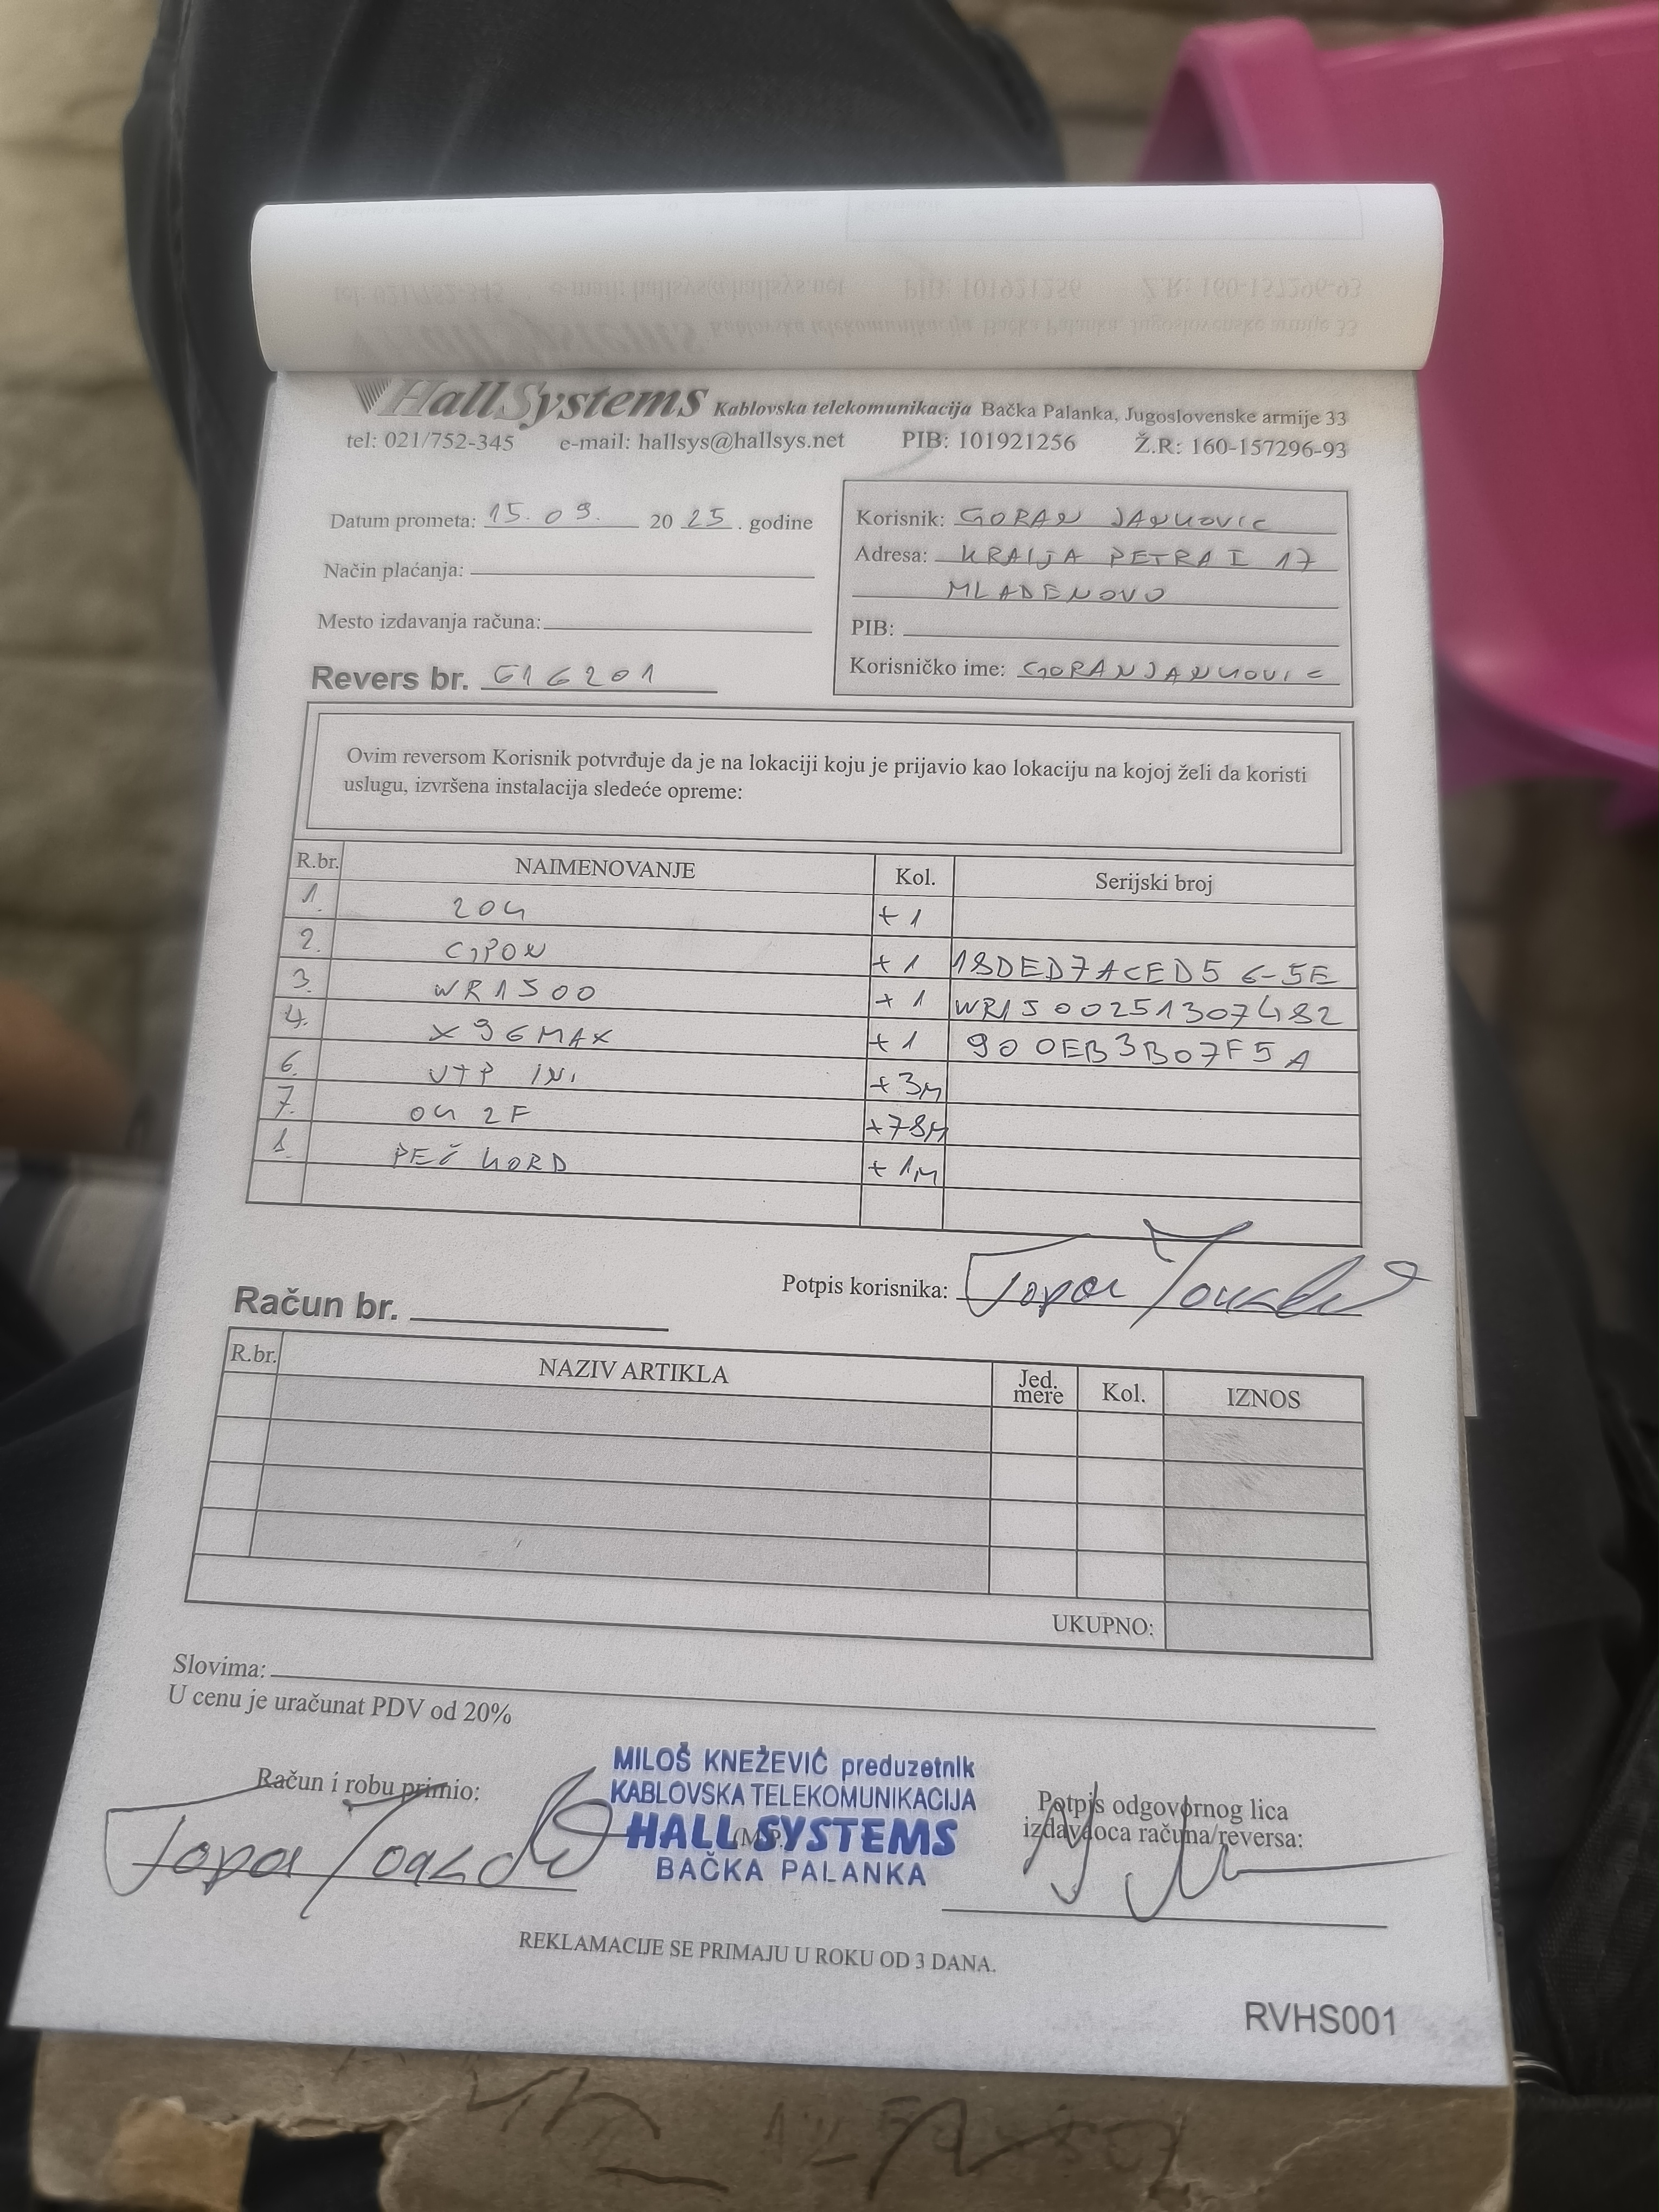 HallSystems Kablovska telekomunikacija Bačka Palanka, Jugoslovenske armije 33
tel: 021/752-345 e-mail: hallsys@hallsys.net PIB: 101921256 Ž.R: 160-157296-93
Datum prometa: 15.09. 20 25. godine
Način plaćanja:
Mesto izdavanja računa:
Revers br. 616201
Korisnik: GORAN JANKOVIC
Adresa: KRALJA PETRA I 17
MLADENOVO
PIB:
Korisničko ime: GORANJANKOVIC
Ovim reversom Korisnik potvrđuje da je na lokaciji koju je prijavio kao lokaciju na kojoj želi da koristi
uslugu, izvršena instalacija sledeće opreme:
R.br. NAIMENOVANJE Kol. Serijski broj
1. ZOK +1
2. GPON +1 18DED7ACED56-5E
3. WR1500 +1 WR1500251307482
4. X96MAX +1 900EB3B07F5A
6. UTP INI +3M
7. OK 2F +78M
8. PEČ KORD +1M
Potpis korisnika:
Račun br.
R.br. NAZIV ARTIKLA Jed. mere Kol. IZNOS
UKUPNO:
Slovima:
U cenu je uračunat PDV od 20%
Račun i robu primio:
MILOŠ KNEŽEVIĆ preduzetnik
KABLOVSKA TELEKOMUNIKACIJA
HALL SYSTEMS
BAČKA PALANKA
Potpis odgovornog lica
izdavaoca računa/reversa:
REKLAMACIJE SE PRIMAJU U ROKU OD 3 DANA.
RVHS001